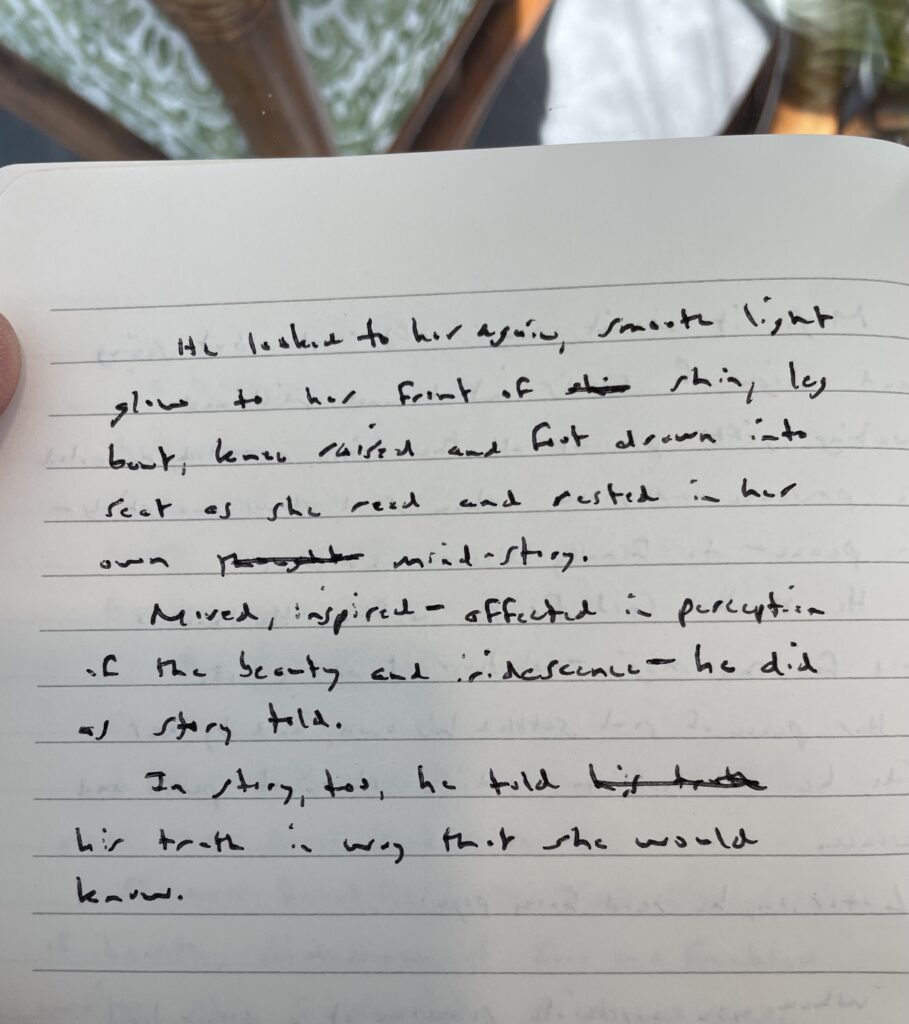 He looked to her again, smooth light
glow to her front of shin, leg
bent, knee raised and foot drawn into
seat as she read and rested in her
own mind-story.
Moved, inspired – affected in perception
of the beauty and iridescence – he did
as story told.
In story, too, he told his truth
his truth in way that she would
know.